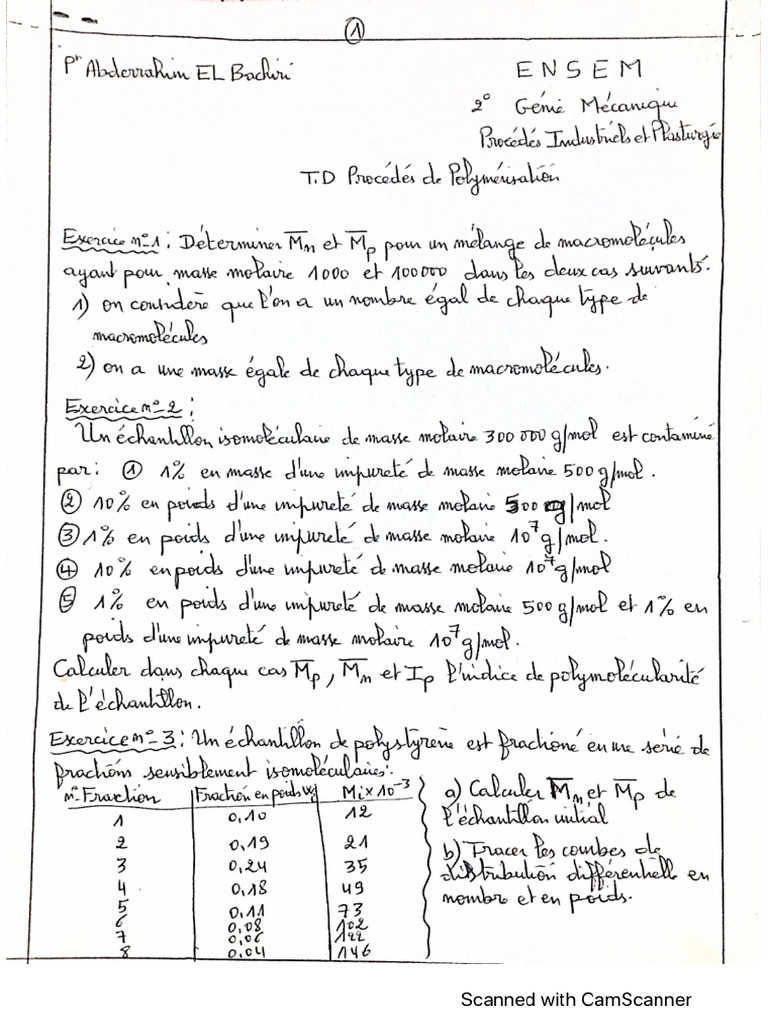 1
Pr Abderrahim EL Bachiri
ENSEM
2° Génie Mécanique
Procédés Industriels et Plasturgie
T.D Procédés de Polymérisation
Exercice n°1 : Déterminer M̅n et M̅p pour un mélange de macromolécules
ayant pour masse molaire 1000 et 100000 dans les deux cas suivants.
1) on considère que l'on a un nombre égal de chaque type de
macromolécules
2) on a une masse égale de chaque type de macromolécules.
Exercice n°2 :
Un échantillon isomoléculaire de masse molaire 300 000 g/mol est contaminé
par : ① 1% en masse d'une impureté de masse molaire 500 g/mol.
② 10% en poids d'une impureté de masse molaire 500 g/mol
③ 1% en poids d'une impureté de masse molaire 10⁷ g/mol.
④ 10% en poids d'une impureté de masse molaire 10⁷ g/mol
⑤ 1% en poids d'une impureté de masse molaire 500 g/mol et 1% en
poids d'une impureté de masse molaire 10⁷ g/mol.
Calculer dans chaque cas M̅p, M̅n et Ip l'indice de polymolécularité
de l'échantillon.
Exercice n°3 : Un échantillon de polystyrène est fractioné en une série de
fractions sensiblement isomoléculaires :
n° Fraction | Fraction en poids wi | Mi x 10⁻³
1 | 0,10 | 12
2 | 0,19 | 21
3 | 0,24 | 35
4 | 0,18 | 49
5 | 0,11 | 73
6 | 0,08 | 102
7 | 0,06 | 122
8 | 0,04 | 146
a) Calculer M̅n et M̅p de
l'échantillon initial
b) Tracer les courbes de
distribution différentielle en
nombre et en poids.
Scanned with CamScanner